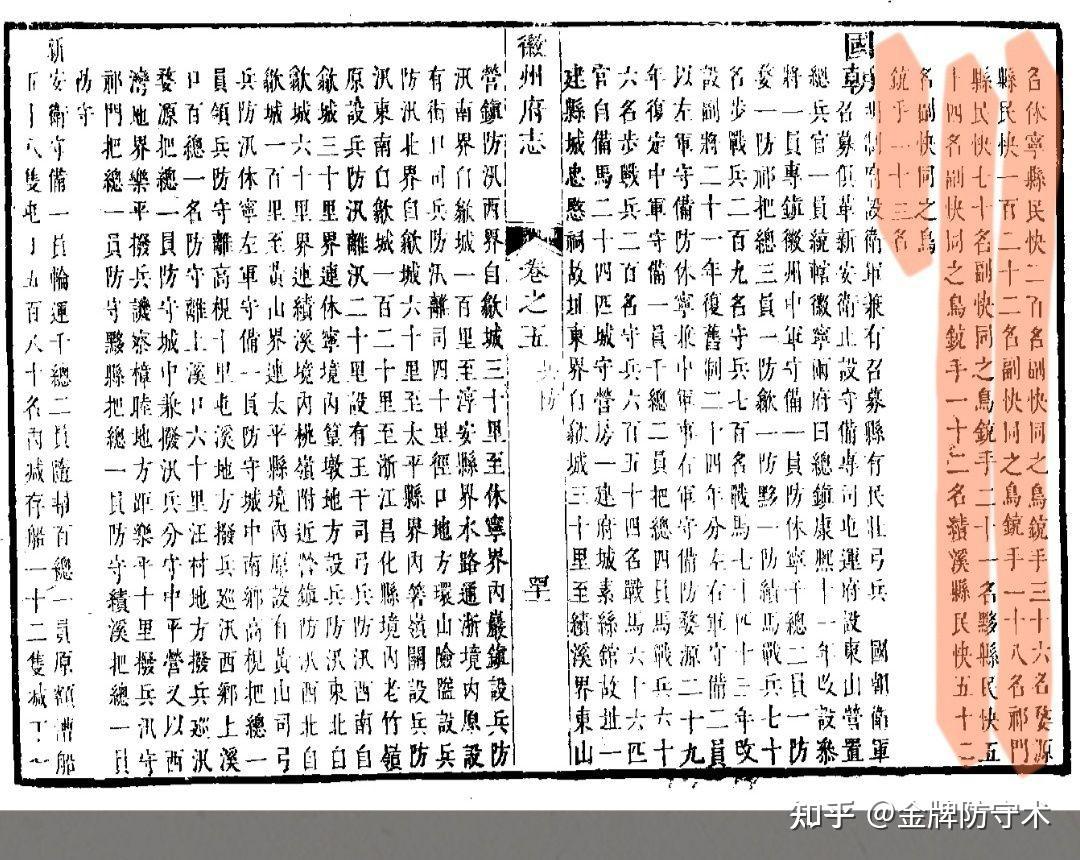 名休寧縣民快二百名副快同之鳥銃手三十六名婺源
縣民快一百二十二名副快同之鳥銃手一十八名祁門
縣民快七十名副快同之鳥銃手二十一名黟縣民快五
十四名副快同之鳥銃手一十二名績溪縣民快五十二
名副快同之鳥
銃手一十三名
國朝
明制府設衛軍兼有召募縣有民壯弓兵 國朝衛軍
召募俱革新安衛止設守備專司屯運府設東山營置
總兵官一員統轄徽寧兩府曰總鎮康熙十一年改設參
將一員專鎮徽州中軍守備一員防休寧千總二員一防
婺一防祁把總三員一防歙一防黟一防績馬戰兵七十
名步戰兵二百九名守兵七百名戰馬七十四十三年改
設副將二十一年復舊制二十四年分左右軍守備二員
以左軍守備防休寧兼中軍事右軍守備防婺源二十九
年復定中軍守備一員千總二員把總四員馬戰兵六十
六名步戰兵二百名守兵六百五十四名戰馬六十六匹
官自備馬二十四匹城守營房一建府城素絲舘故址一
建縣城忠愍祠故址東界自歙城三十里至績溪界東山
徽州府志
卷之五
兵防
營鎮防汛西界自歙城三十里至休寧界內巖鎮設兵防
汛南界自歙城一百里至淳安縣界水路通浙境內原設
有街口司兵防汛離司四十里徑口地方環山險隘設兵
防汛北界自歙城六十里至太平縣界內箬嶺關設兵防
汛東南自歙城一百二十里至浙江昌化縣境內老竹嶺
原設兵防汛離汛二十里設有王干司弓兵防汛西南自
歙城三十里界連休寧境內篁墩地方設兵防汛東北自
歙城六十里界連績溪境內桃嶺附近營鎮防汛西北自
歙城一百里至黃山界連太平縣境內原設有黃山司弓
兵防汛休寧左軍守備一員防守城中南鄉高梘把總一
員領兵防守離高梘十里屯溪地方撥兵巡汛西鄉上溪
口百總一名防守離上溪口六十里汪村地方撥兵巡汛
婺源把總一員防守城中兼撥汛兵分守中平營又以西
灣地界樂平撥兵譏察樟睦地方距樂平十里撥兵汛守
祁門把總一員防守黟縣把總一員防守績溪把總一員
防守
新安衛守備一員輪運千總二員隨幫百總一員原額漕船
五十八隻屯丁五百八十名內減存船一十二隻減丁一
知乎 @金牌防守术